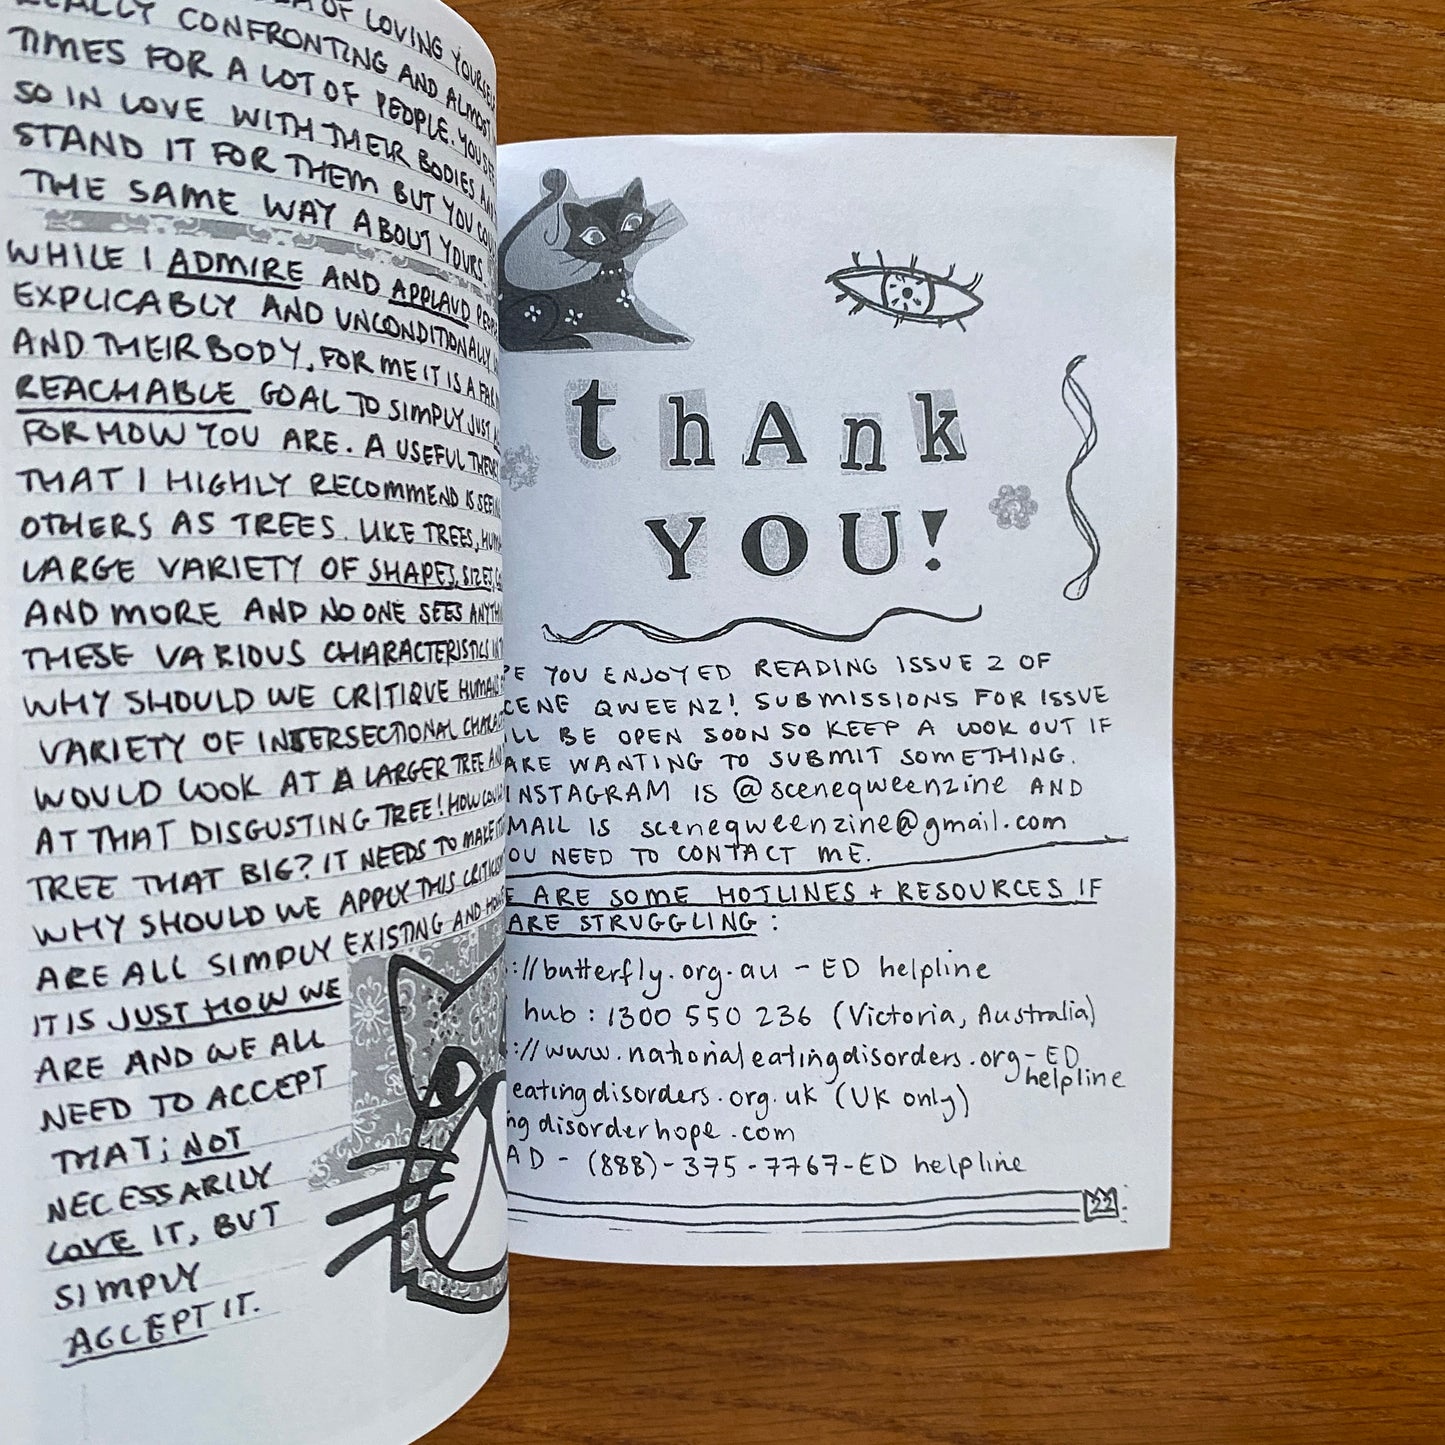 OF LOVING YOURSELF
REALLY CONFRONTING AND ALMOST
TIMES FOR A LOT OF PEOPLE. YOU SEE
SO IN LOVE WITH THEIR BODIES AND
STAND IT FOR THEM BUT YOU COUL
THE SAME WAY ABOUT YOURS
WHILE I ADMIRE AND APPLAUD PEOP
EXPLICABLY AND UNCONDITIONALLY
AND THEIR BODY, FOR ME IT IS A FAR
REACHABLE GOAL TO SIMPLY JUST
FOR HOW YOU ARE. A USEFUL THEORY
THAT I HIGHLY RECOMMEND IS SEEIN
OTHERS AS TREES. LIKE TREES, HUM
LARGE VARIETY OF SHAPES, SIZES,
AND MORE AND NO ONE SEES ANYTH
THESE VARIOUS CHARACTERISTICS
WHY SHOULD WE CRITIQUE HUMANS
VARIETY OF INTERSECTIONAL CHARAC
WOULD LOOK AT A LARGER TREE AN
AT THAT DISGUSTING TREE! HOW COULD
TREE THAT BIG? IT NEEDS TO MAKE IT
WHY SHOULD WE APPLY THIS CRITICISM
ARE ALL SIMPLY EXISTING AND
IT IS JUST HOW WE
ARE AND WE ALL
NEED TO ACCEPT
THAT; NOT
NECESSARILY
LOVE IT, BUT
SIMPLY
ACCEPT IT.
thAnk
YOU!
PE YOU ENJOYED READING ISSUE 2 OF
CENE QWEENZ! SUBMISSIONS FOR ISSUE
ILL BE OPEN SOON SO KEEP A LOOK OUT IF
ARE WANTING TO SUBMIT SOMETHING.
INSTAGRAM IS @sceneqweenzine AND
MAIL IS sceneqweenzine@gmail.com
OU NEED TO CONTACT ME.
E ARE SOME HOTLINES + RESOURCES IF
ARE STRUGGLING:
://butterfly.org.au - ED helpline
hub: 1300 550 236 (Victoria, Australia)
://www.nationaleatingdisorders.org - ED
helpline
eatingdisorders.org.uk (UK only)
ng disorderhope.com
AD - (888)-375-7767-ED helpline
22